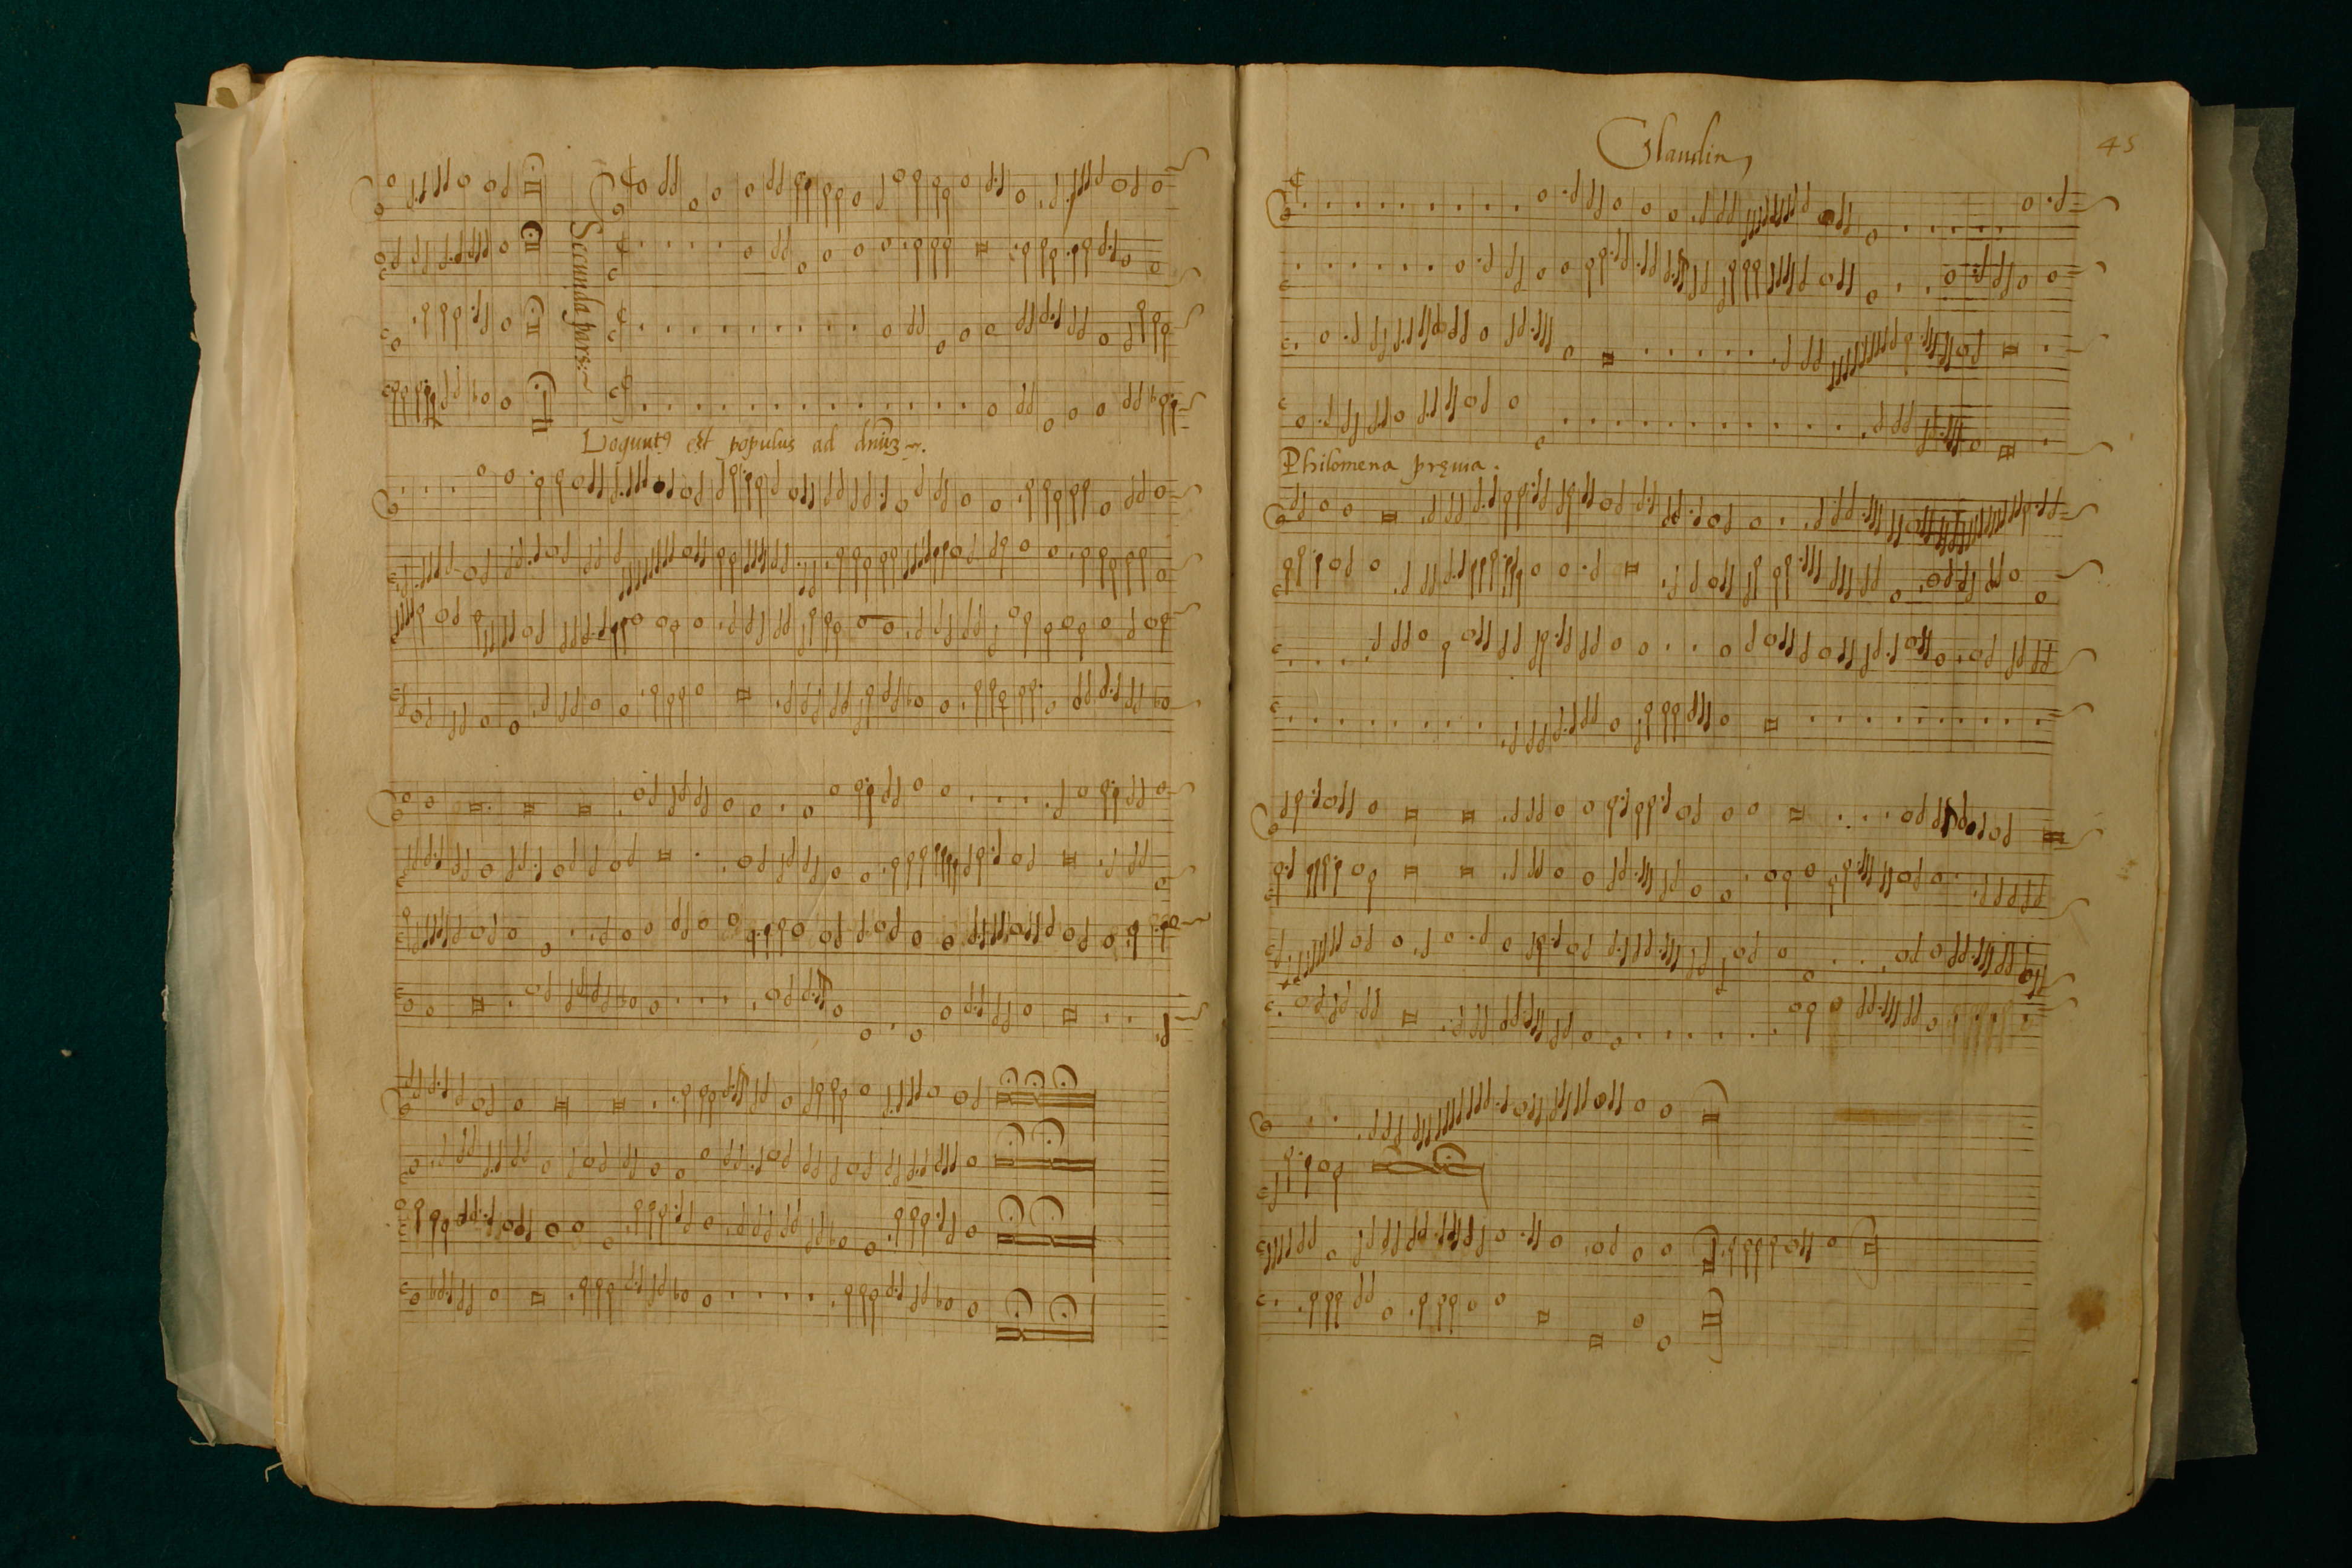 Secunda pars:~
Loqunt9 est populus ad dnūz ~.
Claudin
45
Philomena pręuia .